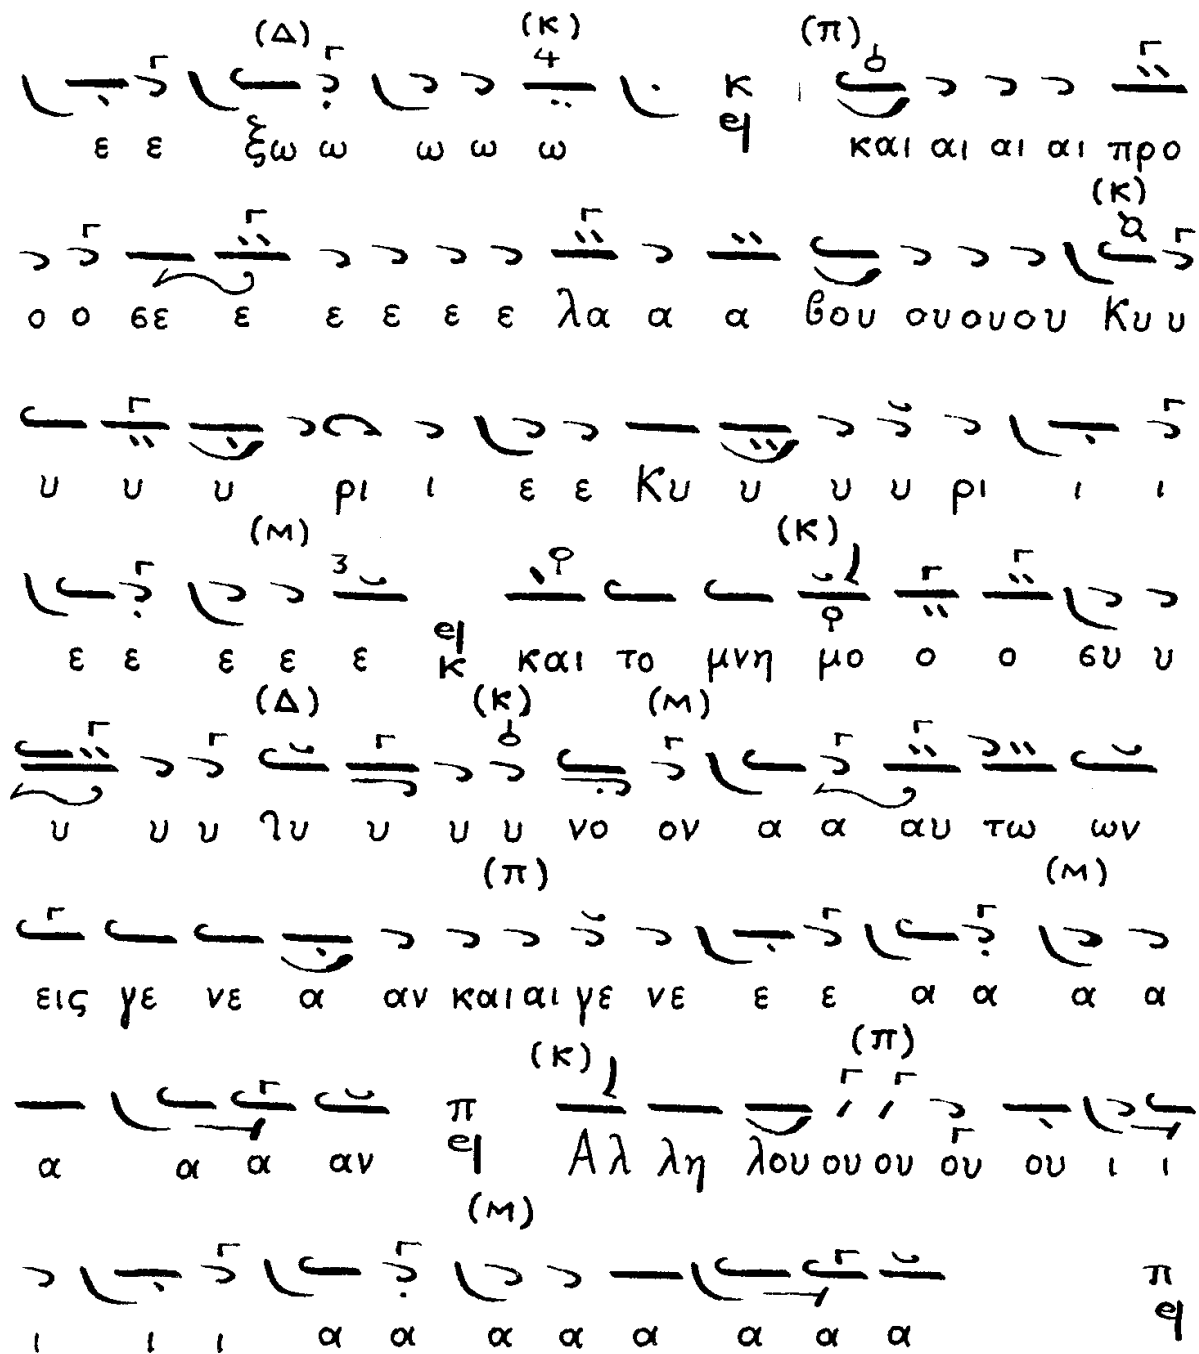 (Δ) (κ) (π)
ε ε ξω ω ω ω ω και αι αι αι προ
(κ)
ο ο σε ε ε ε ε ε λα α α βου ου ου ου Κυ υ
υ υ υ ρι ι ε ε Κυ υ υ υ ρι ι ι
(Μ) (κ)
ε ε ε ε ε και το μνη μο ο ο συ υ
(Δ) (κ) (Μ)
υ υ υ λυ υ υ υ νο ον α α αυ τω ων
(π) (Μ)
εις γε νε α αν και αι γε νε ε ε α α α α
(κ) (π)
α α α αν Αλ λη λου ου ου ου ου ι ι
(Μ)
ι ι ι α α α α α α α α